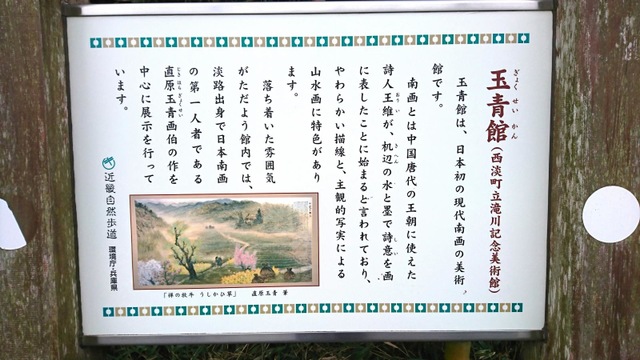 玉青館(西淡町立滝川記念美術館)
ぎょくせいかん
玉青館は、日本初の現代南画の美術
館です。
南画とは中国唐代の王朝に使えた
詩人王維が、机辺の水と墨で詩意を画
に表したことに始まると言われており、
やわらかい描線と、主観的写実による
山水画に特色があり
ます。
落ち着いた雰囲気
がただよう館内では、
淡路出身で日本南画
の第一人者である
直原玉青画伯の作を
中心に展示を行って
います。
「禅の牧牛 うしかひ草」 直原玉青 筆
近畿自然歩道 環境庁・兵庫県